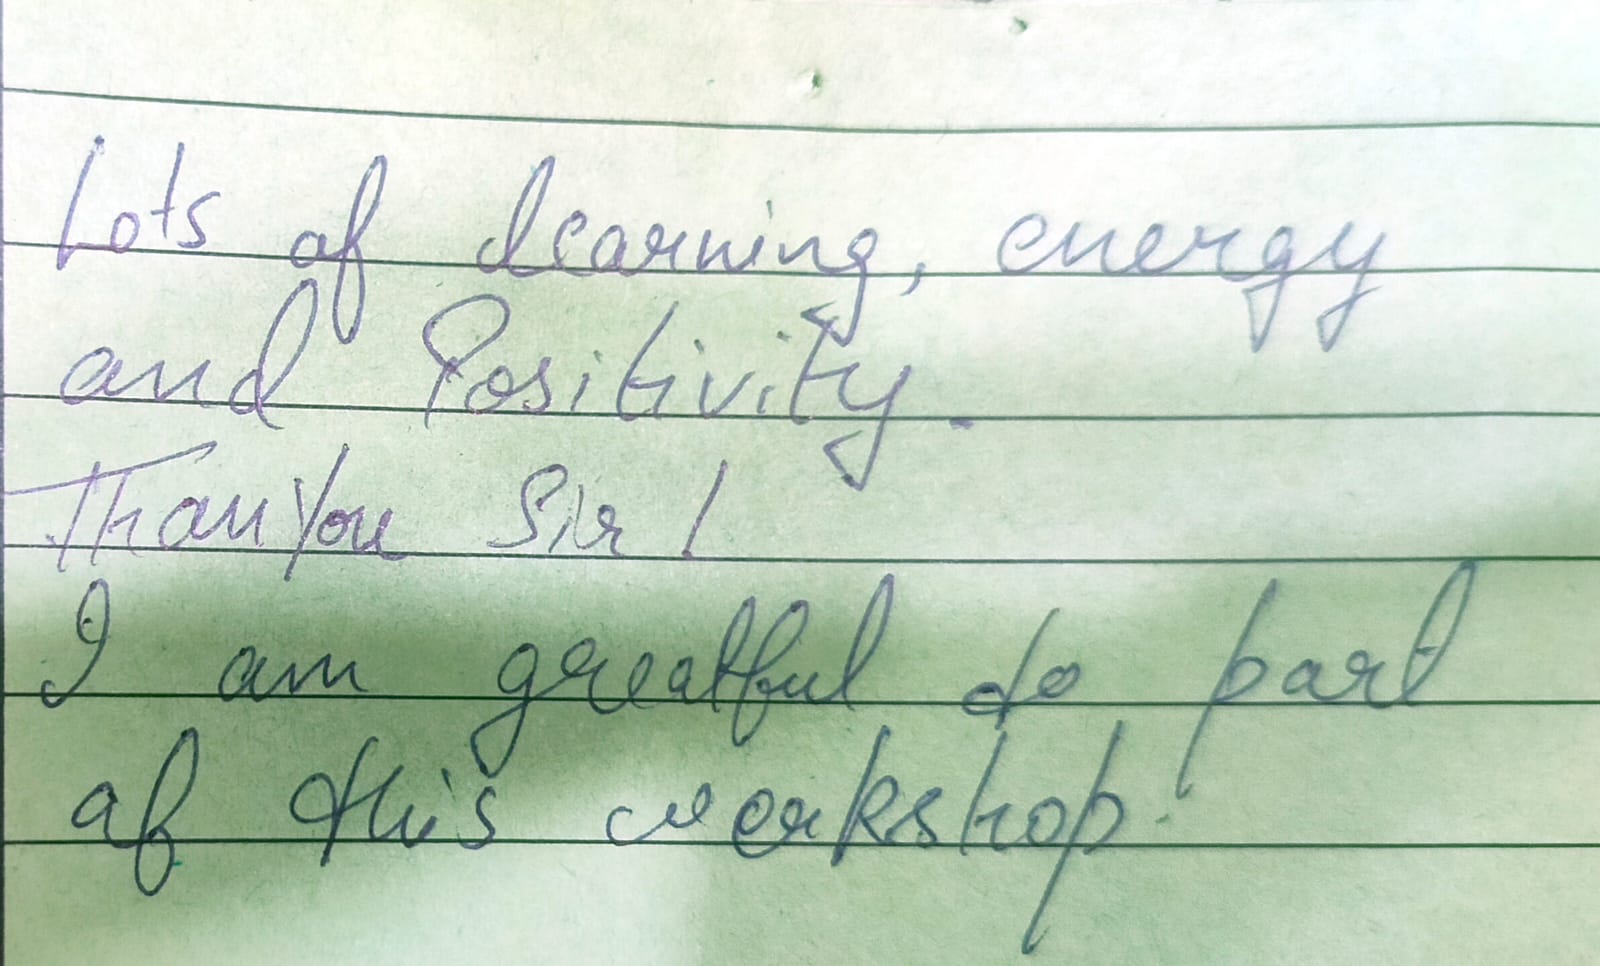 Lots of learning, energy
and Positivity.
ThanYou Sir!
I am greatful to part
of this workshop.